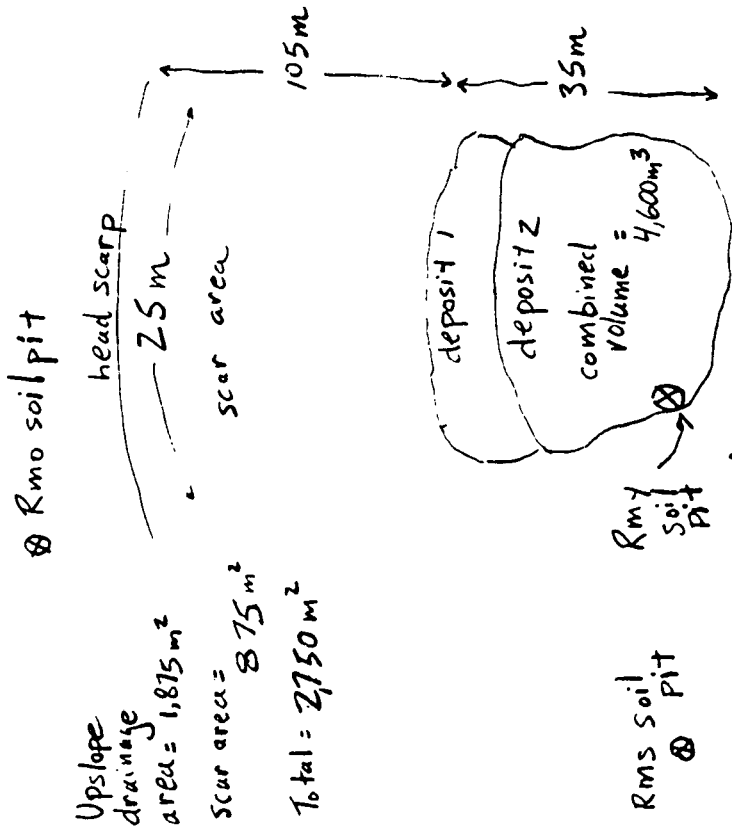 ⊗ Rmo soil pit
head scarp
25 m
scar area
105m
Upslope
drainage
area = 1,875 m²
scar area =
875 m²
Total = 2,750 m²
deposit 1
deposit 2
combined
volume =
4,600 m³
35m
Rmy
soil
pit
Rms soil
pit